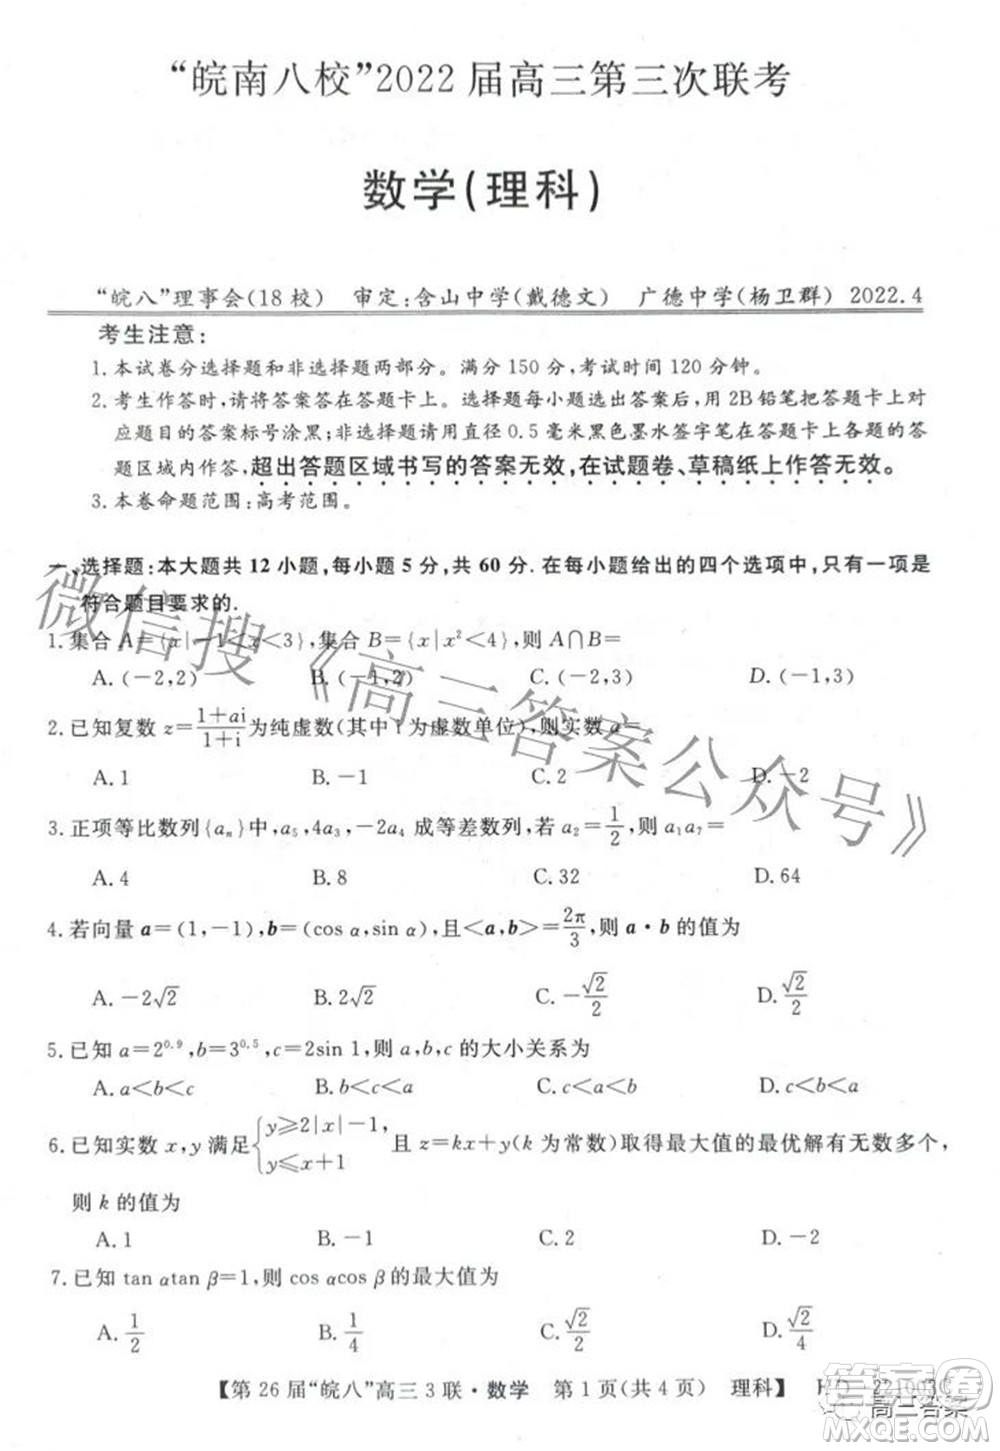 “皖南八校”2022届高三第三次联考
数学(理科)
“皖八”理事会(18校) 审定:含山中学(戴德文) 广德中学(杨卫群) 2022.4
考生注意:
1.本试卷分选择题和非选择题两部分。满分150分,考试时间120分钟。
2.考生作答时,请将答案答在答题卡上。选择题每小题选出答案后,用2B铅笔把答题卡上对
应题目的答案标号涂黑;非选择题请用直径0.5毫米黑色墨水签字笔在答题卡上各题的答
题区域内作答,超出答题区域书写的答案无效,在试题卷、草稿纸上作答无效。
3.本卷命题范围:高考范围。
一、选择题:本大题共12小题,每小题5分,共60分.在每小题给出的四个选项中,只有一项是
符合题目要求的.
1.集合A={x|-1<x<3},集合B={x|x²<4},则A∩B=
A.(-2,2) B.(-1,2) C.(-2,3) D.(-1,3)
2.已知复数z=(1+ai)/(1+i)为纯虚数(其中i为虚数单位),则实数a=
A.1 B.-1 C.2 D.-2
3.正项等比数列{aₙ}中,a₅,4a₃,-2a₄成等差数列,若a₂=1/2,则a₁a₇=
A.4 B.8 C.32 D.64
4.若向量a=(1,-1),b=(cos α,sin α),且<a,b>=2π/3,则a·b的值为
A.-2√2 B.2√2 C.-√2/2 D.√2/2
5.已知a=2^0.9,b=3^0.5,c=2sin 1,则a,b,c的大小关系为
A.a<b<c B.b<c<a C.c<a<b D.c<b<a
6.已知实数x,y满足{y≥2|x|-1, y≤x+1 且z=kx+y(k为常数)取得最大值的最优解有无数多个,
则k的值为
A.1 B.-1 C.2 D.-2
7.已知tan αtan β=1,则cos αcos β的最大值为
A.1/2 B.1/4 C.√2/2 D.√2/4
【第26届“皖八”高三3联·数学 第1页(共4页) 理科】 HD 221003C
微信搜《高三答案公众号》
答案圈
高三答案